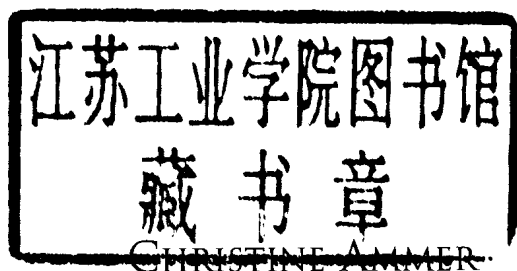 江苏工业学院图书馆
藏书章
CHRISTINE AMMER